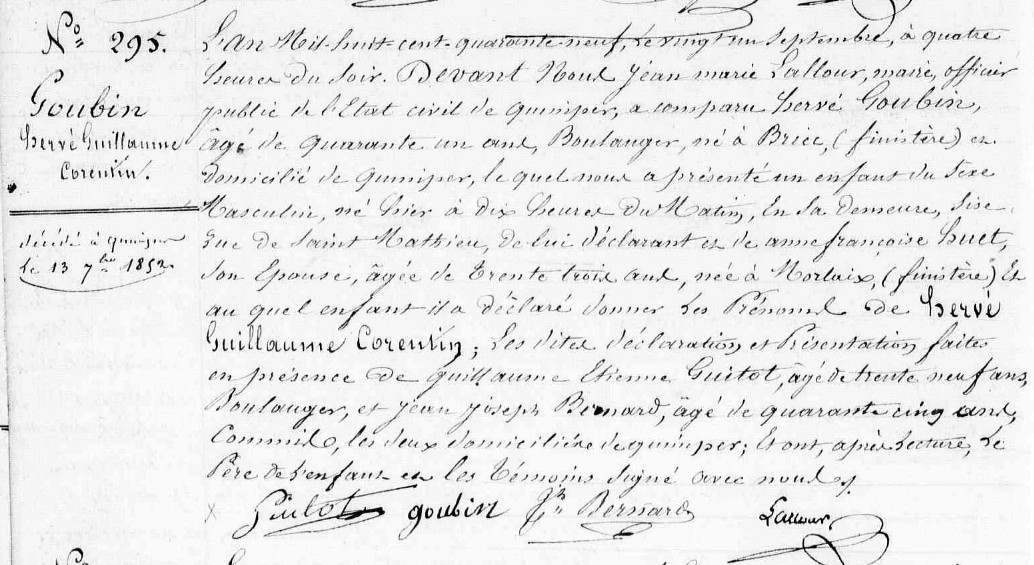 N° 295.
Goubin
hervé Guillaume
Corentin.
décédé à quimper
le 13 7bre 1852
L'an Mil-huit-cent-quarante-neuf, le vingt un Septembre, à quatre
heures du Soir. Devant Nous Jean marie Lallour, maire, officier
public de l'Etat civil de quimper, a comparu hervé Goubin,
âgé de quarante un ans, Boulanger, né à Briec, (finistère) et
domicilié de quimper, le quel nous a présenté un enfant du Sexe
Masculin, né hier à dix heures du Matin, En Sa demeure, Sise
rue de Saint Mathieu, de lui déclarant et de anne françoise huet,
Son Epouse, âgée de trente trois ans, née à Morlaix, (finistère) Et
au quel enfant il a déclaré donner les Prénoms de hervé
Guillaume Corentin; Les dites déclaration et Présentation faites
en présence de Guillaume Etienne Guitot, âgé de trente neuf ans,
Boulanger, et Jean Joseph Bernard, âgé de quarante cinq ans,
Commis, les deux domiciliés de quimper; Et ont, après Lecture, le
Père de l'enfant et les témoins Signé avec nous.
Guitot goubin Jh Bernard Lallour
N°